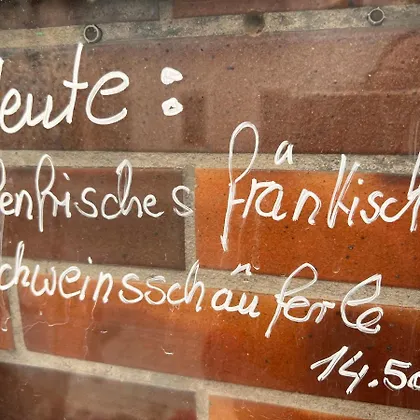 Heute:
ofenfrisches fränkisch
Schweinsschäuferle
14.50